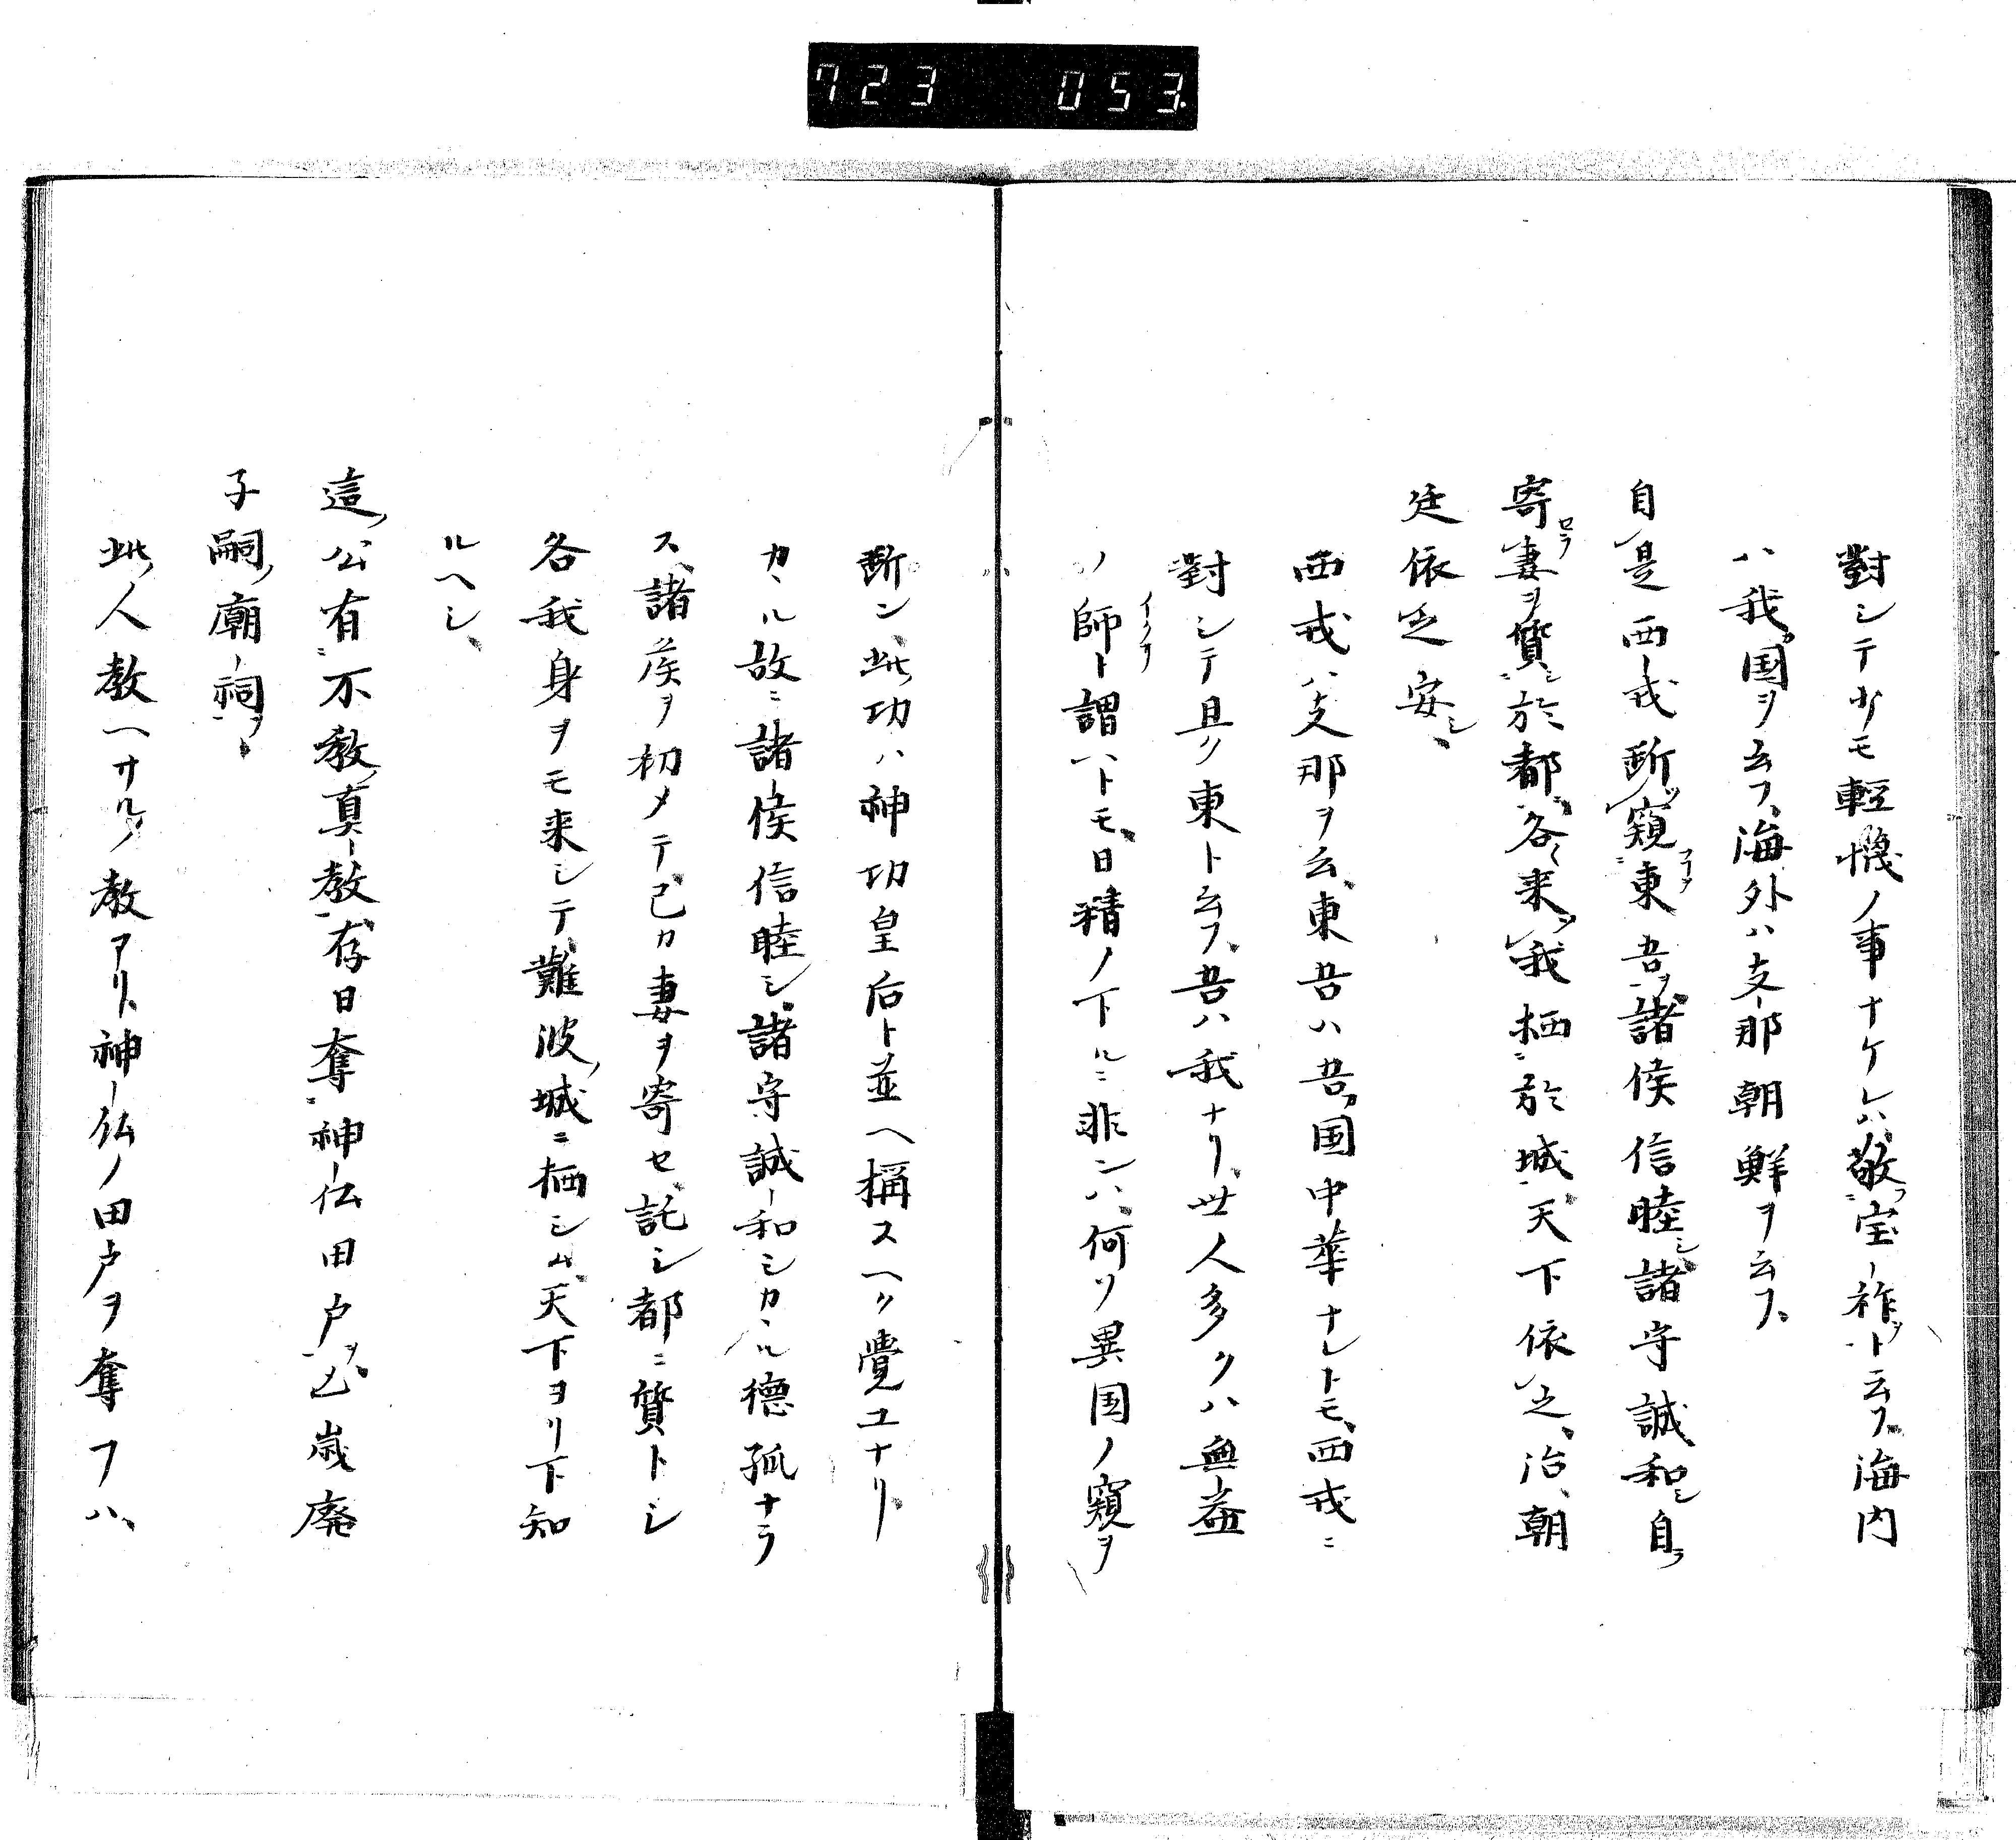 723 053
對シテ少モ輕慢ノ事ナケレハ、敬宝祚ヲト云フ、海内
ハ我国ヲ云フ、海外ハ支那朝鮮ヲ云フ、
自是西戎断窺東吾ヲ、諸侯信睦シ、諸守誠和シ、自ラ
寄妻ヲ質ニ於都、各来我栖ニ於城、天下依之、治、朝
廷依之安シ、
西戎ハ支那ヲ云、東吾ハ吾国中華ナレトモ、西戎ニ
對シテ且ク東ト云フ、吾ハ我ナリ、世人多クハ無益
ノ師ト謂ヘトモ、日精ノ下ルニ非ンハ、何ソ異国ノ窺ヲ
断ン、此功ハ神功皇后ト並ヘ稱スヘク覺ユナリ、
カヽル故ニ諸侯信睦シ、諸守誠和シカヽル德孤ナラ
ス、諸侯ヲ初メテ、己カ妻ヲ寄セ、託シ都ニ質トシ
各我身ヲモ来シテ、難波城ニ栖シム、天下ヨリ下知
ルヘシ、
這公有不教真教、存日奪神仏田戸ヲ、亡歳廃
子嗣廟祠ヲ、
此人教ヘサルノ教アリト、神仏ノ田戸ヲ奪フハ、